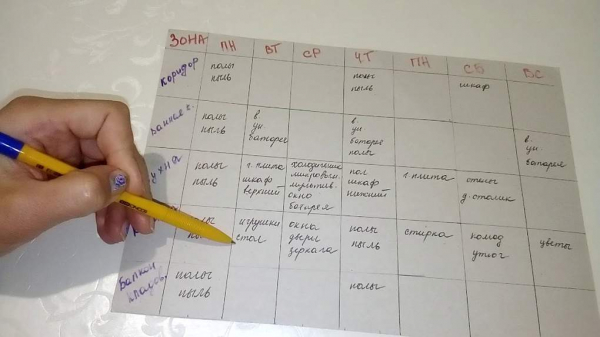 ЗОНА ПН ВТ СР ЧТ ПН СБ ВС
коридор
полы
пыль
полы
пыль
шкаф
ванная
полы
пыль
в.
ун
батарея
в.
ун
батарея
полы
в.
ун
батарея
кухня
полы
пыль
г. плита
шкаф
верхний
холодильник
микроволн.
мультив.
окно
батарея
пол
шкаф
нижний
г. плита
стены
д. столик
полы
пыль
игрушки
стол
окна
двери
зеркала
полы
пыль
стирка
комод
утюг
цветы
Балкон
кладов.
полы
пыль
полы